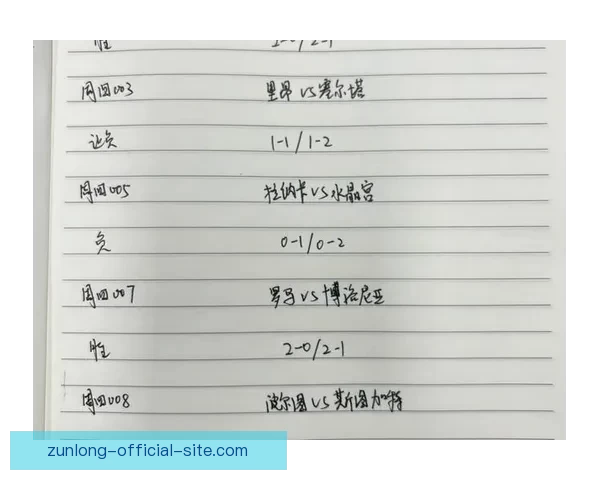 胜 2-0/2-1
周四003 里昂 VS 塞尔塔
让负 1-1/1-2
周四005 拉纳卡 VS 水晶宫
负 0-1/0-2
周四007 罗马 VS 博洛尼亚
胜 2-0/2-1
周四008 波尔图 VS 斯图加特
zunlong-official-site.com